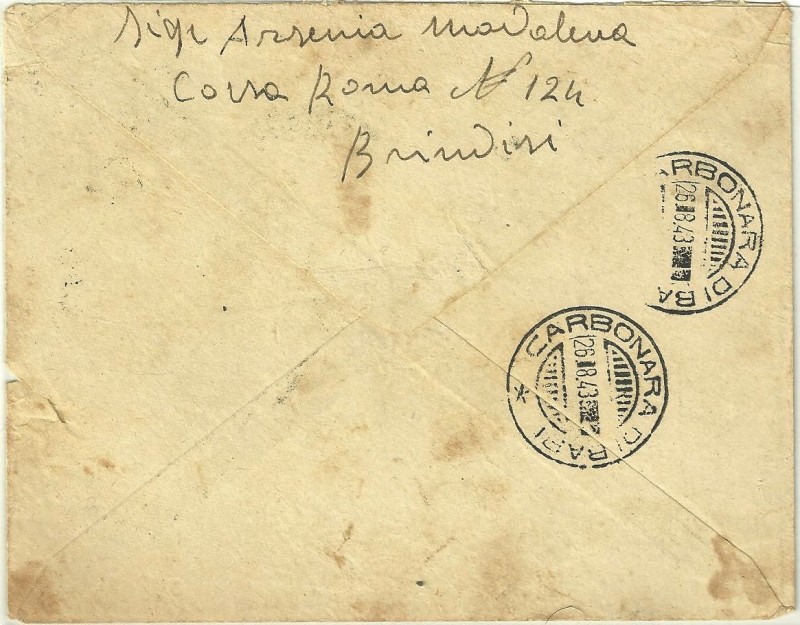 Sigr Arsenia Madalena
Corsa Roma N 124
Brindisi
ARBONARA DI BA
26.8.43
CARBONARA DI BARI
26.8.43
*